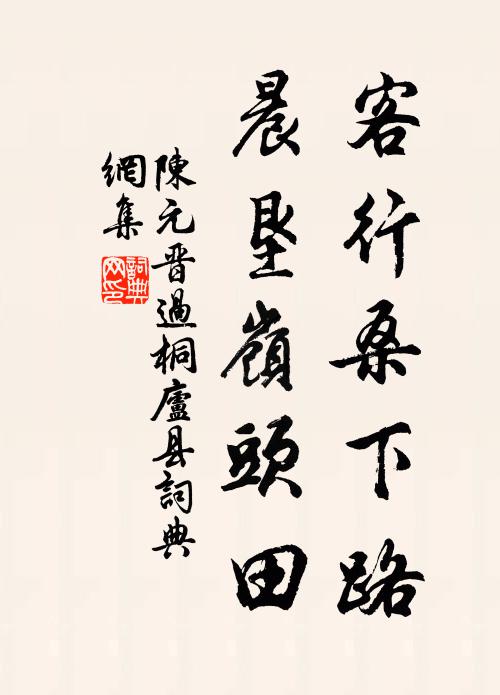 客行桑下路
晨垦嶺頭田
陳元晋過桐廬县詞典
網集
詞典網印